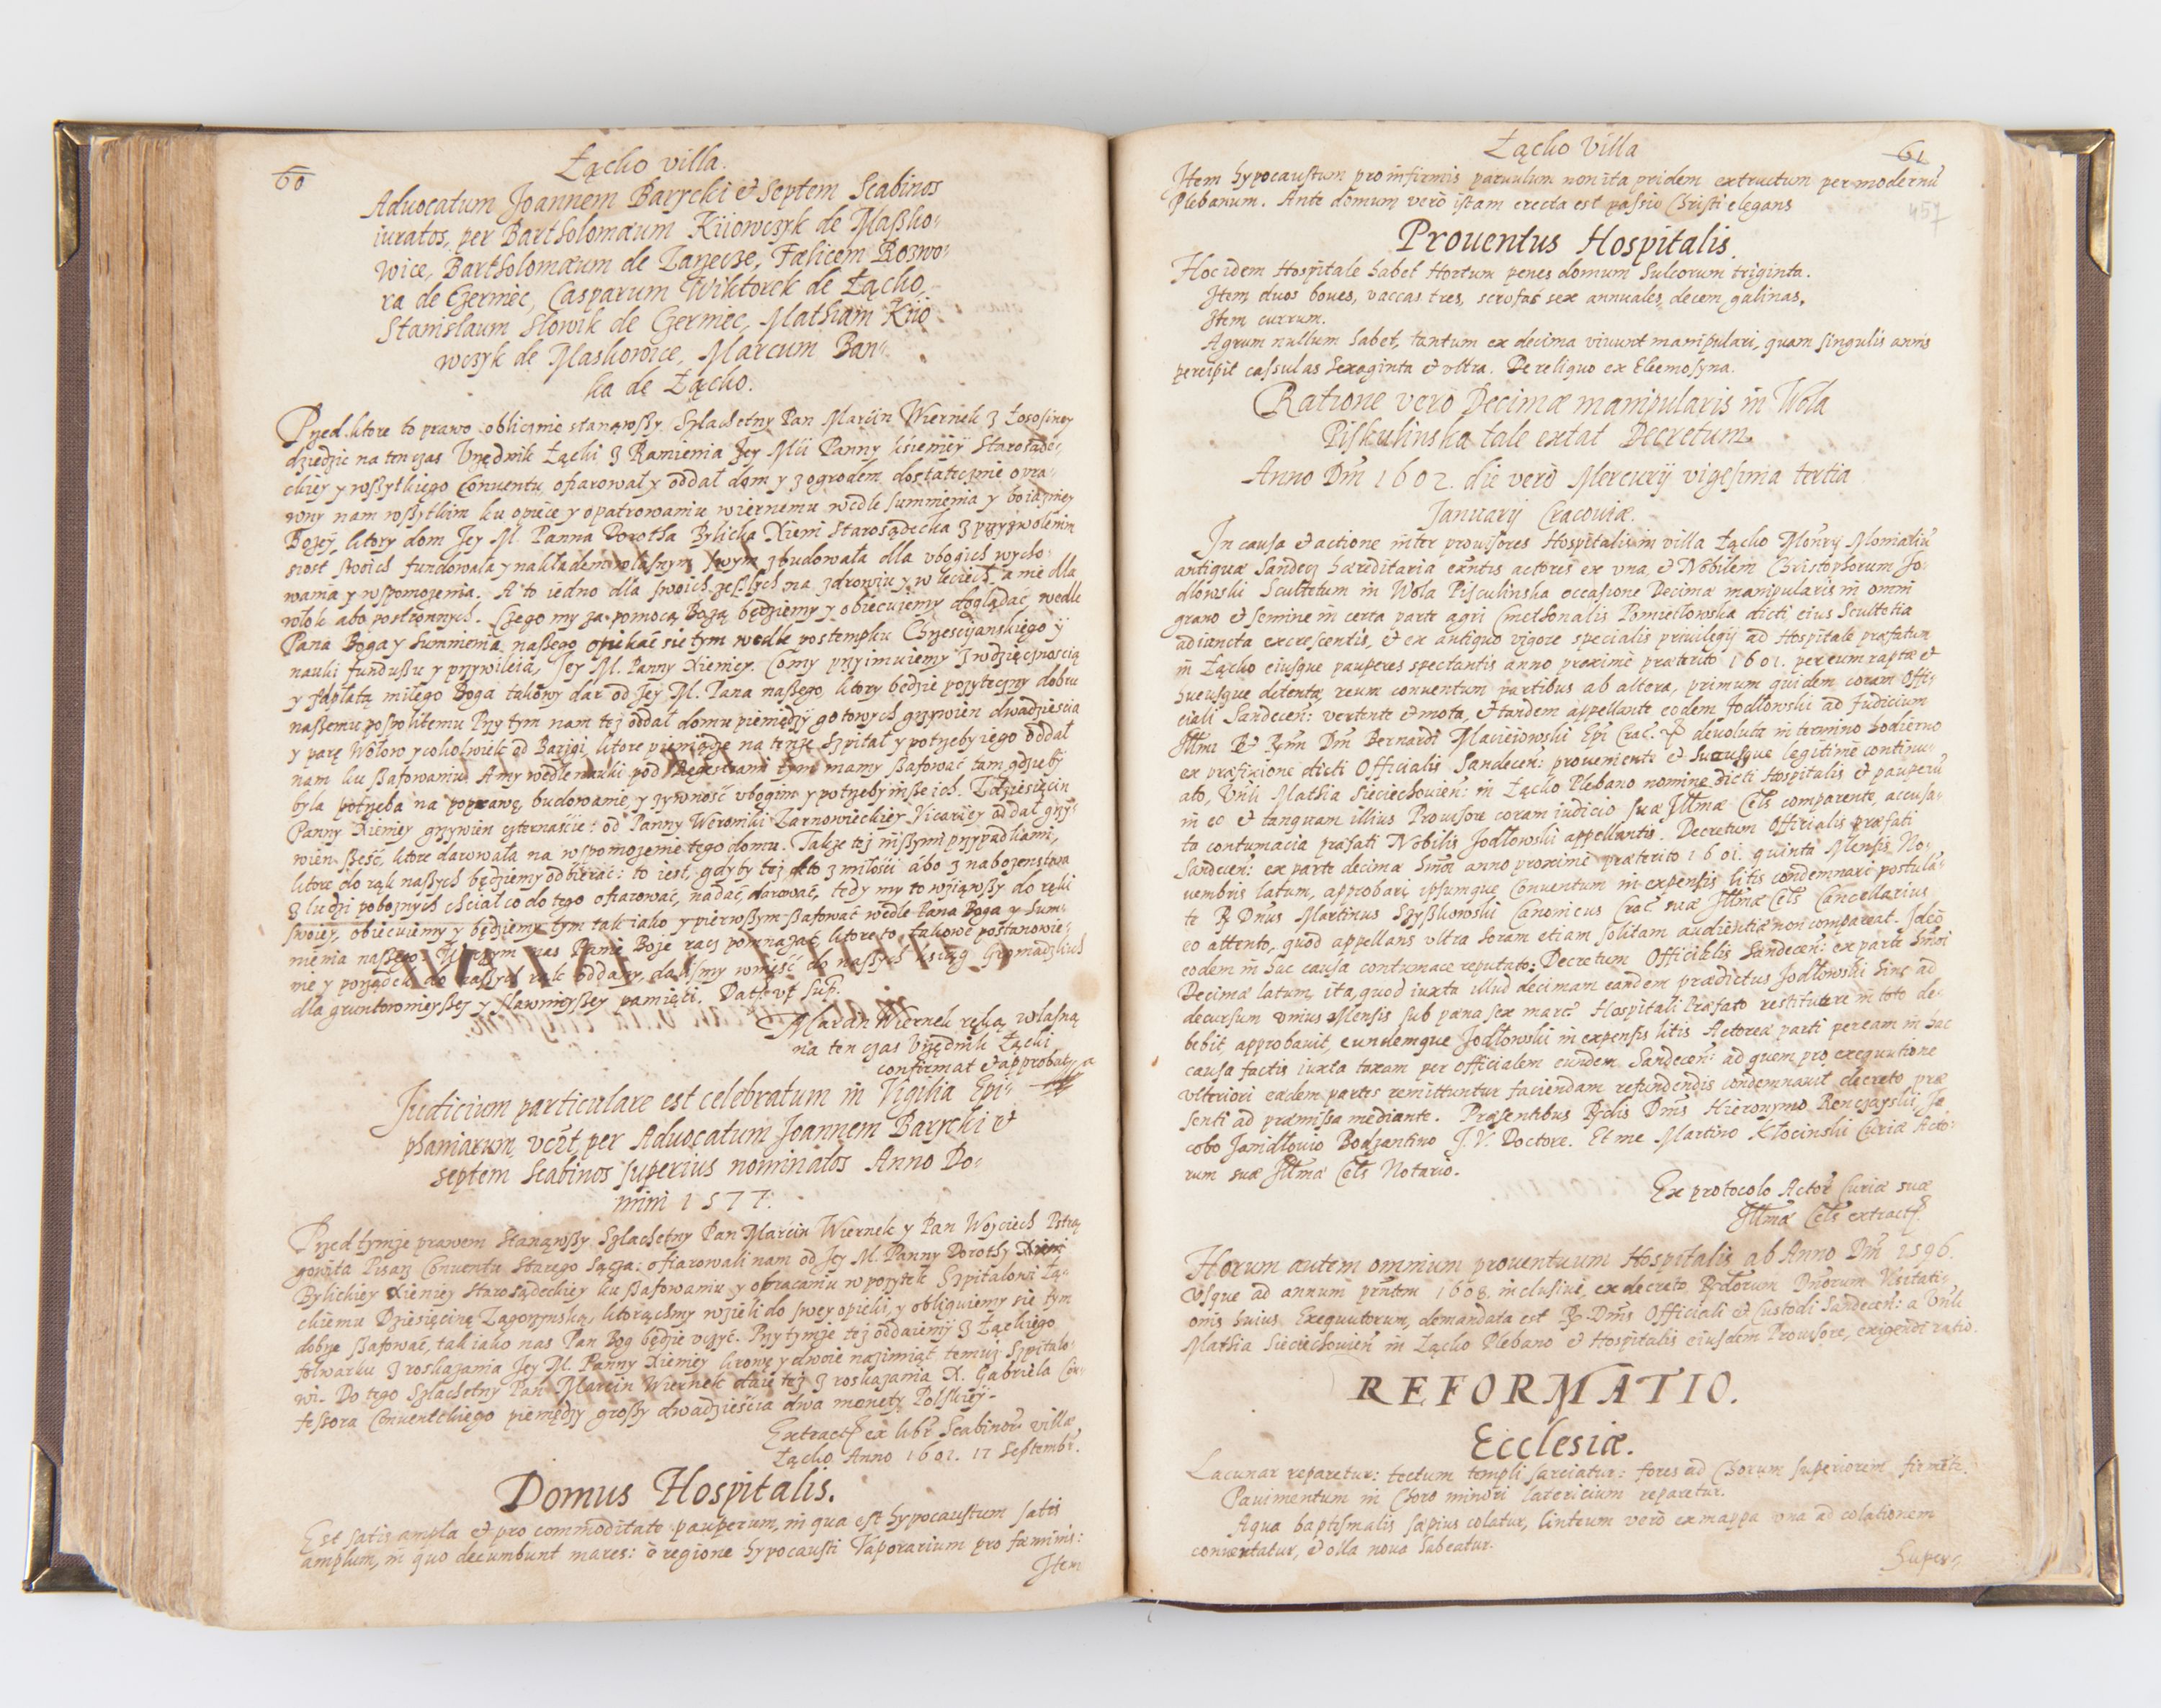 60
Łącko villa.
Aduocatum Joannem Barycki et Septem Scabinos
iuratos, per Bartholomæum Kiiowczyk de Maszko-
wice, Bartholomæum de Zarzecze, Fælicem Rozwo-
ra de Czerniec, Casparum Wiktorek de Łącko,
Stanislaum Słowik de Czerniec, Mathiam Kiio
wczyk de Maskowice, Marcum Ban-
ka de Łącko.
Przed ktore to prawo oblicznie stanąwszy Szlachetny Pan Marcin Wiernek z Łososiney
dziedzic na ten czas Vrzędnik Łącki z Ramienia Jey Mci Panny xsieniey Starosade-
ckiey y wszytkiego Conuentu, ofiarował y oddał dom y z ogrodem dostatecznie
nam wszytkim ku opiece y opatrowaniu wiernemu wedle summienia y boiazniey
Bozey, ktory dom Jey M. Panna Dorotha Bylicka Xieni Starosądecka z przyzwolenim
siost swoich fundowała y nakładem własnym swym zbudowała dla vbogich wycho-
wania y wspomozenia. A to iedno dla swoich na zdrowiu y w leciech, a nie dla
włok abo postronnych. Czego my za pomocą Bozą będziemy y obiecuiemy doglądać wedle
Pana Boga y Summienia naszego opiekać sie tym wedle postempku Chrzesciianskiego y
nauki funduszu y przywileia, Jey M. Panny Xieniey. Co my przyimuiemy z wdzięcznoscią
y zapłatą miłego Boga takowy dar od Jey M. Pana naszego ktory będzie pozyteczny dobru
naszemu pospolitemu Przy tym nam tez oddał domu pieniędzy gotowych grzywien dwadziescia
y parę Wołow ycokolwiek od Barzigi, ktore pieniądze na tenze Szpital y potrzeby iego oddał
nam ku szafowaniu. A my wedle nauki pod Regestrami tym mamy szafować tam gdzieby
była potrzeba na poprawę, budowanie, y zywność vbogim y potrzeby insze ich. Zdziesięcin
Panny Xieniey grzywien czternaście: od Panny Weroniki Zarnowieckiey Vicariiey oddał grzy-
wien szesć, ktore darowała na wspomozenie tego domu. Takze tez inszymi przypadkami,
ktore do rąk naszych będziemy odbierać: to iest, gdyby tez kto z miłości abo z nabozenstwa
z ludzi poboznych chciał co do tego ofiarować, nadać, darować, tedy my to wziąwszy do ręki
swoiey, obiecuiemy y będziemy tym tak iako y pierwszym szafować wedle Pana Boga y Sum-
nienia naszego Panie Boze racz pomnazać, ktore to takowe postanowie-
nie y porządek do naszych rąk oddany, dalismy wnieść do naszych ksiąg Gromadzkich
dla gruntownieyszey y sławnieyszey pamięci. Dat. vt sup.
Marcin Wiernek ręką własną
na ten czas Vrzędnik Łącki
confirmat et approbat
Judicium particulare est celebratum in Vigilia Epi-
phaniarum, per Aduocatum Joannem Barycki et
septem Scabinos superius nominatos Anno Do-
mini 1577.
Przed tymze prawem Stanąwszy Szlachetny Pan Marcin Wiernek y Pan Woyciech Pstrą
gowita Pisarz Conuentu Starego Sącza: ofiarowali nam od Jey M. Panny Dorothy Xieni
Bylickiey Xieniey Starosądeckiey ku szafowaniu y obracaniu w pozytek Szpitalowi Łą-
ckiemu Dziesięcinę Zagorzynską, ktorąchmy wzieli do swey opieki, y obliguiemy sie tym
dobrze szafować, tak iako nas Pan Bog będzie vczyć. Przy tymze tez oddaiemy z Łąckiego
folwarku z roskazania Jey M. Panny Xieniey krowę y dwoie nazimiąt temuz Szpitalo-
wi. Do tego Szlachetny Pan Marcin Wiernek daie tez z roskazania X. Gabriela Con-
fessora Conuentckiego pieniędzy groszy dwadziescia dwa monety Polskiey.
Extract ex libr Scabinor villæ
Łącko Anno 1601. 17 Septembr.
Domus Hospitalis.
Est satis ampla et pro commoditate pauperum, in qua est hypocaustum satis
amplum, in quo decumbunt mares: è regione hypocausti Vaporarium pro fæminis:
Item
Łącko Villa
61
457
Item hypocaustum pro infirmis paruulum non ita pridem extructum per modernū
Plebanum. Ante domum verò istam erecta est passio Christi elegans
Prouentus Hospitalis.
Hoc idem Hospitale habet Hortum penes domum Sulcorum triginta.
Item, duos boues, vaccas tres, scrofas sex annuales, decem galinas.
Item currum.
Agrum nullum habet, tantum ex decima viuunt manipulari, quam singulis annis
percipit cassulas Sexaginta et vltra. De reliquo ex Eleemosyna.
Ratione verò Decimæ manipularis in Wola
Piskulinska tale extat Decretum.
Anno Dm̄ 1602. die verò Mercurij vigesima tertia
Januarij Cracouiæ.
In causa et actione inter prouisores Hospitalis in villa Łącko Monrÿ Monialiū
antiquæ Sandecz hæreditaria actores ex vna, et Nobilem Christophorum Jo-
dłowski Scultetum in Wola Pisculinska occasione Decimæ manipularis in omni
grano et semine in certa parte agri Cmethonalis Pomietlowska dicti eius Scultetia
adiuncta excrescentis, et ex antiquo vigore specialis priuilegij ad Hospitale præfatum
in Łącko eiusque pauperes spectantis anno proximè præterito 1601. per eum raptæ et
hucusque detentæ, reum conuentum partibus ab altera, primum quidem coram Offi-
ciali Sandecen: vertente et mota, et tandem appellante eodem Jodłowski ad Judicium
Illmi et Rmn̄ Dm̄ Bernardi Maciejowski Epi Crac. devoluta in termino hodierno
ex præfixione dicti Officialis Sandecen: proueniente et hucusque legitimè continu-
ato, Vnli Mathia Sieciechouien: in Łącko Plebano nomine dicti Hospitalis et pauperū
in eo et tanquam illius Prouisore coram iudicio suæ Illmæ Cels comparente, accusa-
ta contumacia præfati Nobilis Jodłowski appellantis. Decretum Officialis præfati
Sandecen: ex parte decimæ hmoi anno proximè præterito 1601. quinta Mensis No-
uembris latum, approbari ipsumque Conuentum in expensis litis condemnari postula-
te R Dnus Martinus Szyszkowski Canonicus Crac suæ Illmæ Cels Cancellarius
eo attento, quod appellans vltra horam etiam solitam audientiæ non compareat. Ideo
eodem in hac causa contumace reputato: Decretum Officialis Sandecen: ex parte hmoi
Decimæ latum, ita, quod iuxta illud decimam eandem prædictus Jodłowski hinc ad
decursum vnius Mensis sub pæna sex marc Hospitali Præfato restituere in toto de-
bebit, approbauit, eundemque Jodłowski in expensis litis Actoreæ parti per eam in hac
causa factis iuxta taxam per officialem eundem Sandecen: ad quem pro exequutione
vlteriori eædem partes remittuntur faciendam refundendis condemnauit decreto præ
senti ad præmissa mediante. Præsentibus Rdis Dms Hieronymo Renczayski, Ja
cobo Janidłouio Bodzantino J. V. Doctore. Et me Martino Kłocinski Curiæ Acto-
rum suæ Illmæ Cels Notario.
Ex protocolo Actor Curiæ suæ
Illmæ Cels extract.
Horum autem omnium prouentuum Hospitalis ab Anno Dm̄ 1596.
Vsque ad annum prntem 1608. inclusiuè, ex decreto Rdorum Dnorum Visitati-
onis huius Exequutorum, demandata est R. Dms Officiali et Custodi Sandecen: a Vnli
Mathia Sieciechouien in Łącko Plebano et Hospitalis eiusdem Prouisore, exigendi ratio.
REFORMATIO.
Ecclesiæ.
Lacunar reparetur: tectum templi sarciatur: fores ad Chorum superiorem
Pauimentum in Choro minori latericium reparetur.
Aqua baptismalis sæpius colatur, linteum verò ex mappa vna ad colationem
conuertatur, et olla noua habeatur.
Super-